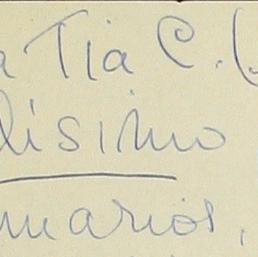 a Tia C. (
lisimo
muarios,